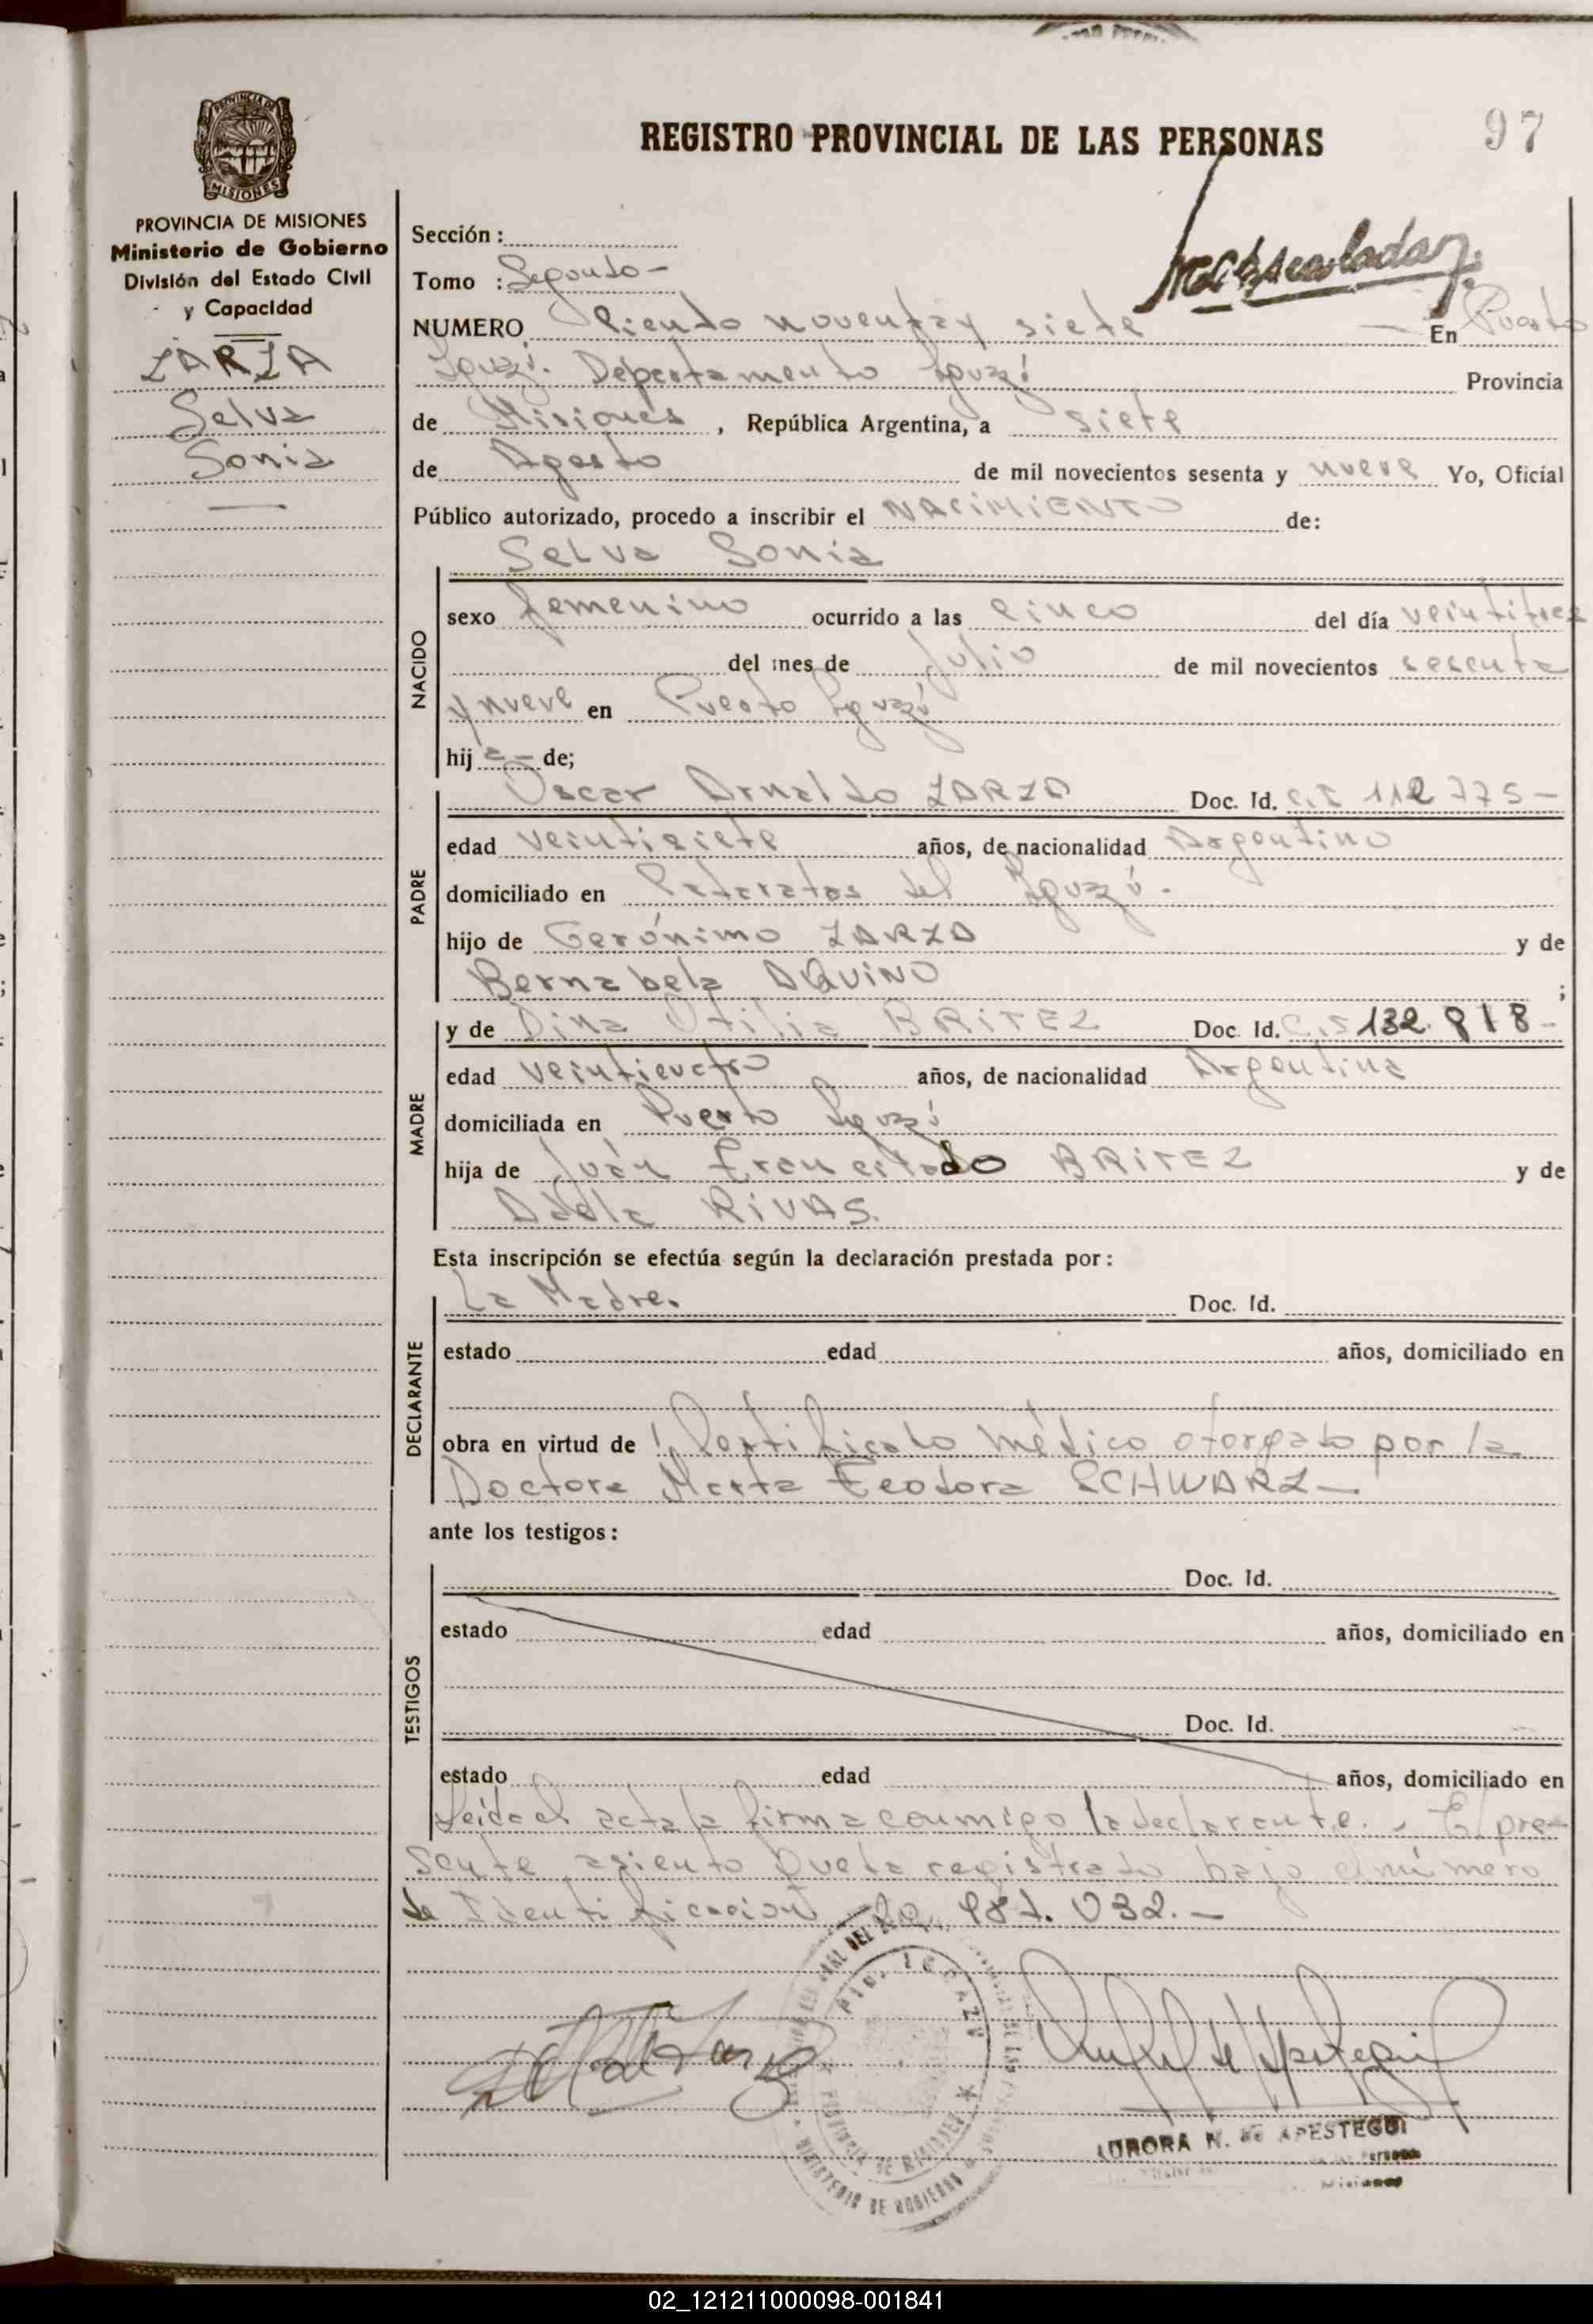 REGISTRO PROVINCIAL DE LAS PERSONAS
97
PROVINCIA DE
MISIONES
PROVINCIA DE MISIONES
Ministerio de Gobierno
División del Estado Civil
y Capacidad
ZARZA
Selva
Sonia
Sección :
Tomo : Segundo -
NUMERO Ciento noventa y siete - En Puerto
Iguazú. Departamento Iguazú Provincia
de Misiones , República Argentina, a siete
de Agosto de mil novecientos sesenta y nueve Yo, Oficial
Público autorizado, procedo a inscribir el NACIMIENTO de:
NACIDO
Selva Sonia
sexo femenino ocurrido a las cinco del día veintitres
del mes de Julio de mil novecientos sesenta
y nueve en Puerto Iguazú
hij a - de;
PADRE
Oscar Arnaldo ZARZA Doc. Id. C.I 112 775 -
edad veintisiete años, de nacionalidad Argentino
domiciliado en Cataratas del Iguazú -
hijo de Gerónimo ZARZA y de
Bernabela AQUINO ;
MADRE
y de Dina Otilia BRITEZ Doc. Id. C.I 132.918 -
edad veinticuatro años, de nacionalidad Argentina
domiciliada en Puerto Iguazú
hija de Juán BRITEZ y de
Adela RIVAS.
Esta inscripción se efectúa según la declaración prestada por:
DECLARANTE
La Madre. Doc. Id.
estado edad años, domiciliado en
obra en virtud de Certificado médico otorgado por la
Doctora Marta Teodora SCHWARZ -
ante los testigos:
TESTIGOS
Doc. Id.
estado edad años, domiciliado en
Doc. Id.
estado edad años, domiciliado en
Leída el acta la firma conmigo la declarante. - El pre-
sente asiento queda registrado bajo el número
de Identificación 987.032. -
MINISTERIO DE GOBIERNO
PROVINCIA DE MISIONES
AURORA N. de APESTEGUI
Misiones
02_121211000098-001841